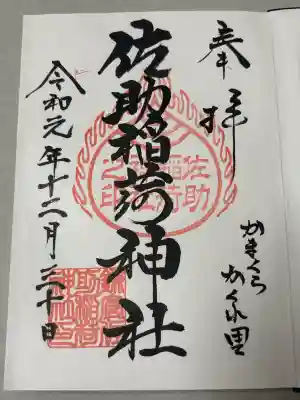 奉拝
かまくら
かくれ里
佐助稲荷神社
佐助
稲荷
神社
之印
令和元年十二月三十日